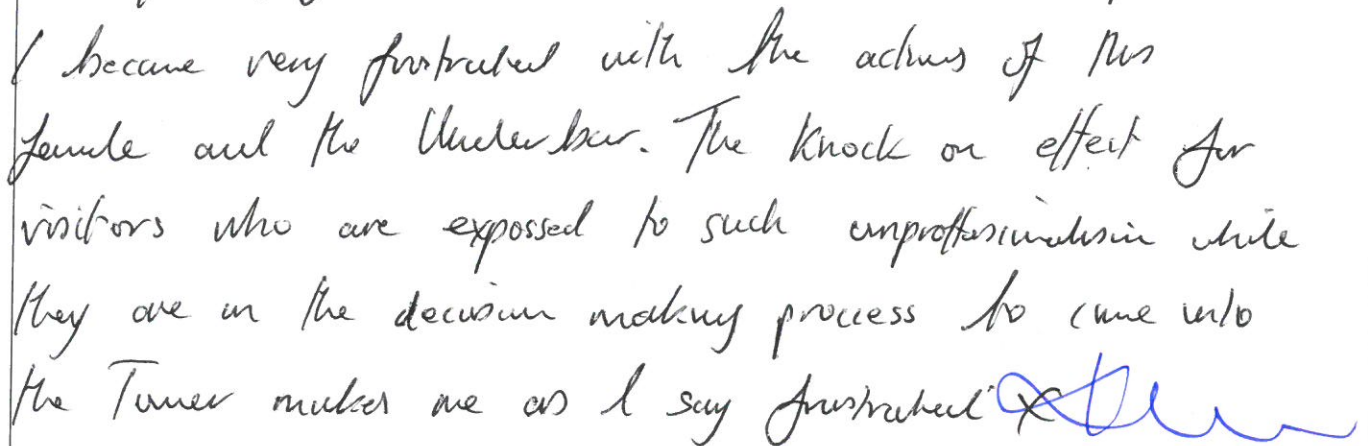 I became very frustrated with the actions of this
female and the Underbar. The Knock on effect for
visitors who are expossed to such unproffesionalism while
they are in the decision making process to come into
the Tower makes me as I say frustrated X